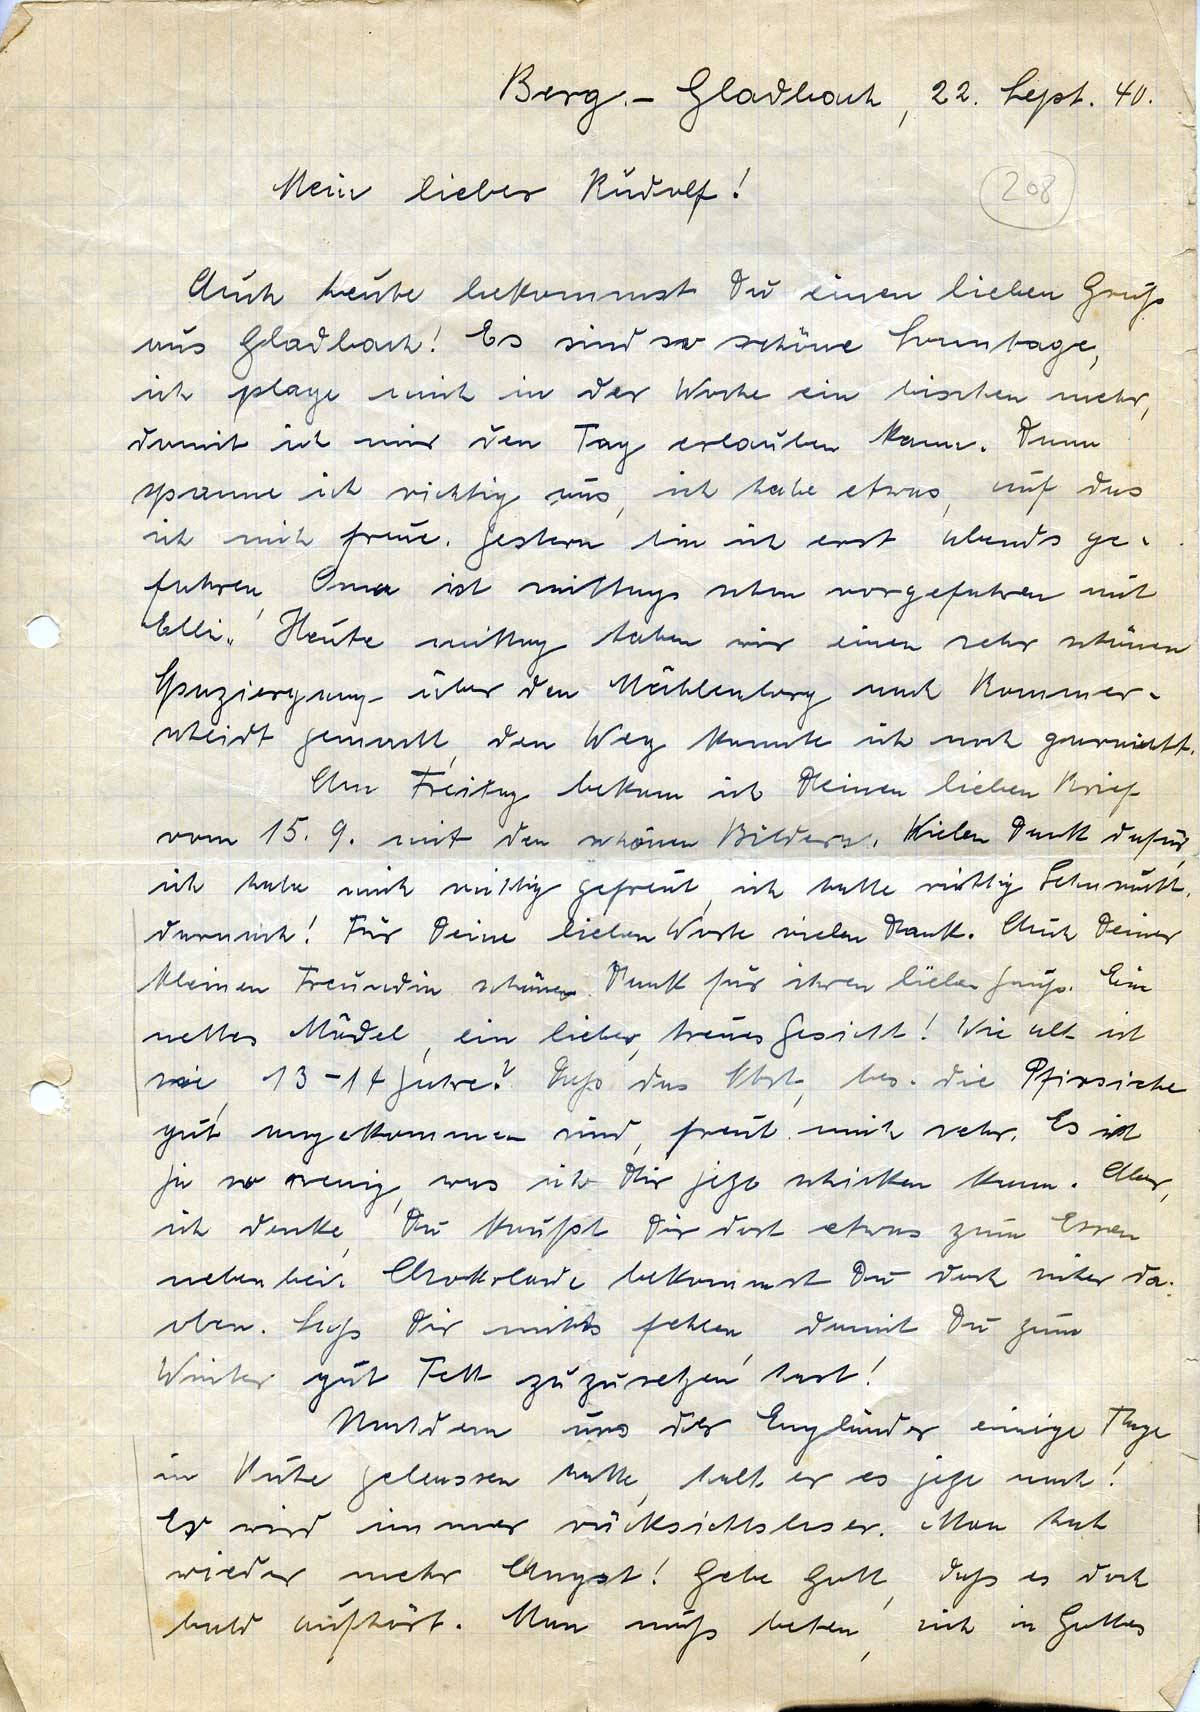 Berg.- Gladbach, 22. Sept. 40.
Mein lieber Rudolf!
208
Auch heute bekommst Du einen lieben Gruß
aus Gladbach! Es sind so schöne Sonntage,
ich plage mich in der Woche ein bischen mehr,
damit ich mir den Tag erlauben kann. Dann
spanne ich richtig aus, ich habe etwas, auf das
ich mich freue. Gestern bin ich erst abends ge-
fahren, Oma ist mittags schon vorgefahren mit
Elli. Heute mittag haben wir einen sehr schönen
Spaziergang über den Mühlenberg nach Rommer-
scheidt gemacht, den Weg kannte ich noch garnicht.
Am Freitag bekam ich Deinen lieben Brief
vom 15. 9. mit den schönen Bildern. Vielen Dank dafür,
ich habe mich richtig gefreut, ich hatte richtig Sehnsucht
darnach! Für Deine lieben Worte vielen Dank. Auch Deiner
kleinen Freundin schönen Dank für ihren lieben Gruß. Ein
nettes Mädel, ein liebes, treues Gesicht! Wie alt ist
sie, 13-14 Jahre? Daß das Obst, bes. die Pfirsiche
gut angekommen sind, freut mich sehr. Es ist
ja so wenig, was ich Dir jetzt schicken kann. Aber,
ich denke, Du kaufst Dir dort etwas zum Essen
nebenbei. Chokolade bekommst Du doch sicher da
oben. Laß Dir nichts fehlen, damit Du zum
Winter gut Fett zuzusetzen hast!
Nachdem uns der Engländer einige Tage
in Ruhe gelassen hatte, holt er es jetzt nach!
Er wird immer rücksichtsloser. Man hat
wieder mehr Angst! Gebe Gott, daß es doch
bald aufhört. Man muß beten, sich in Gottes